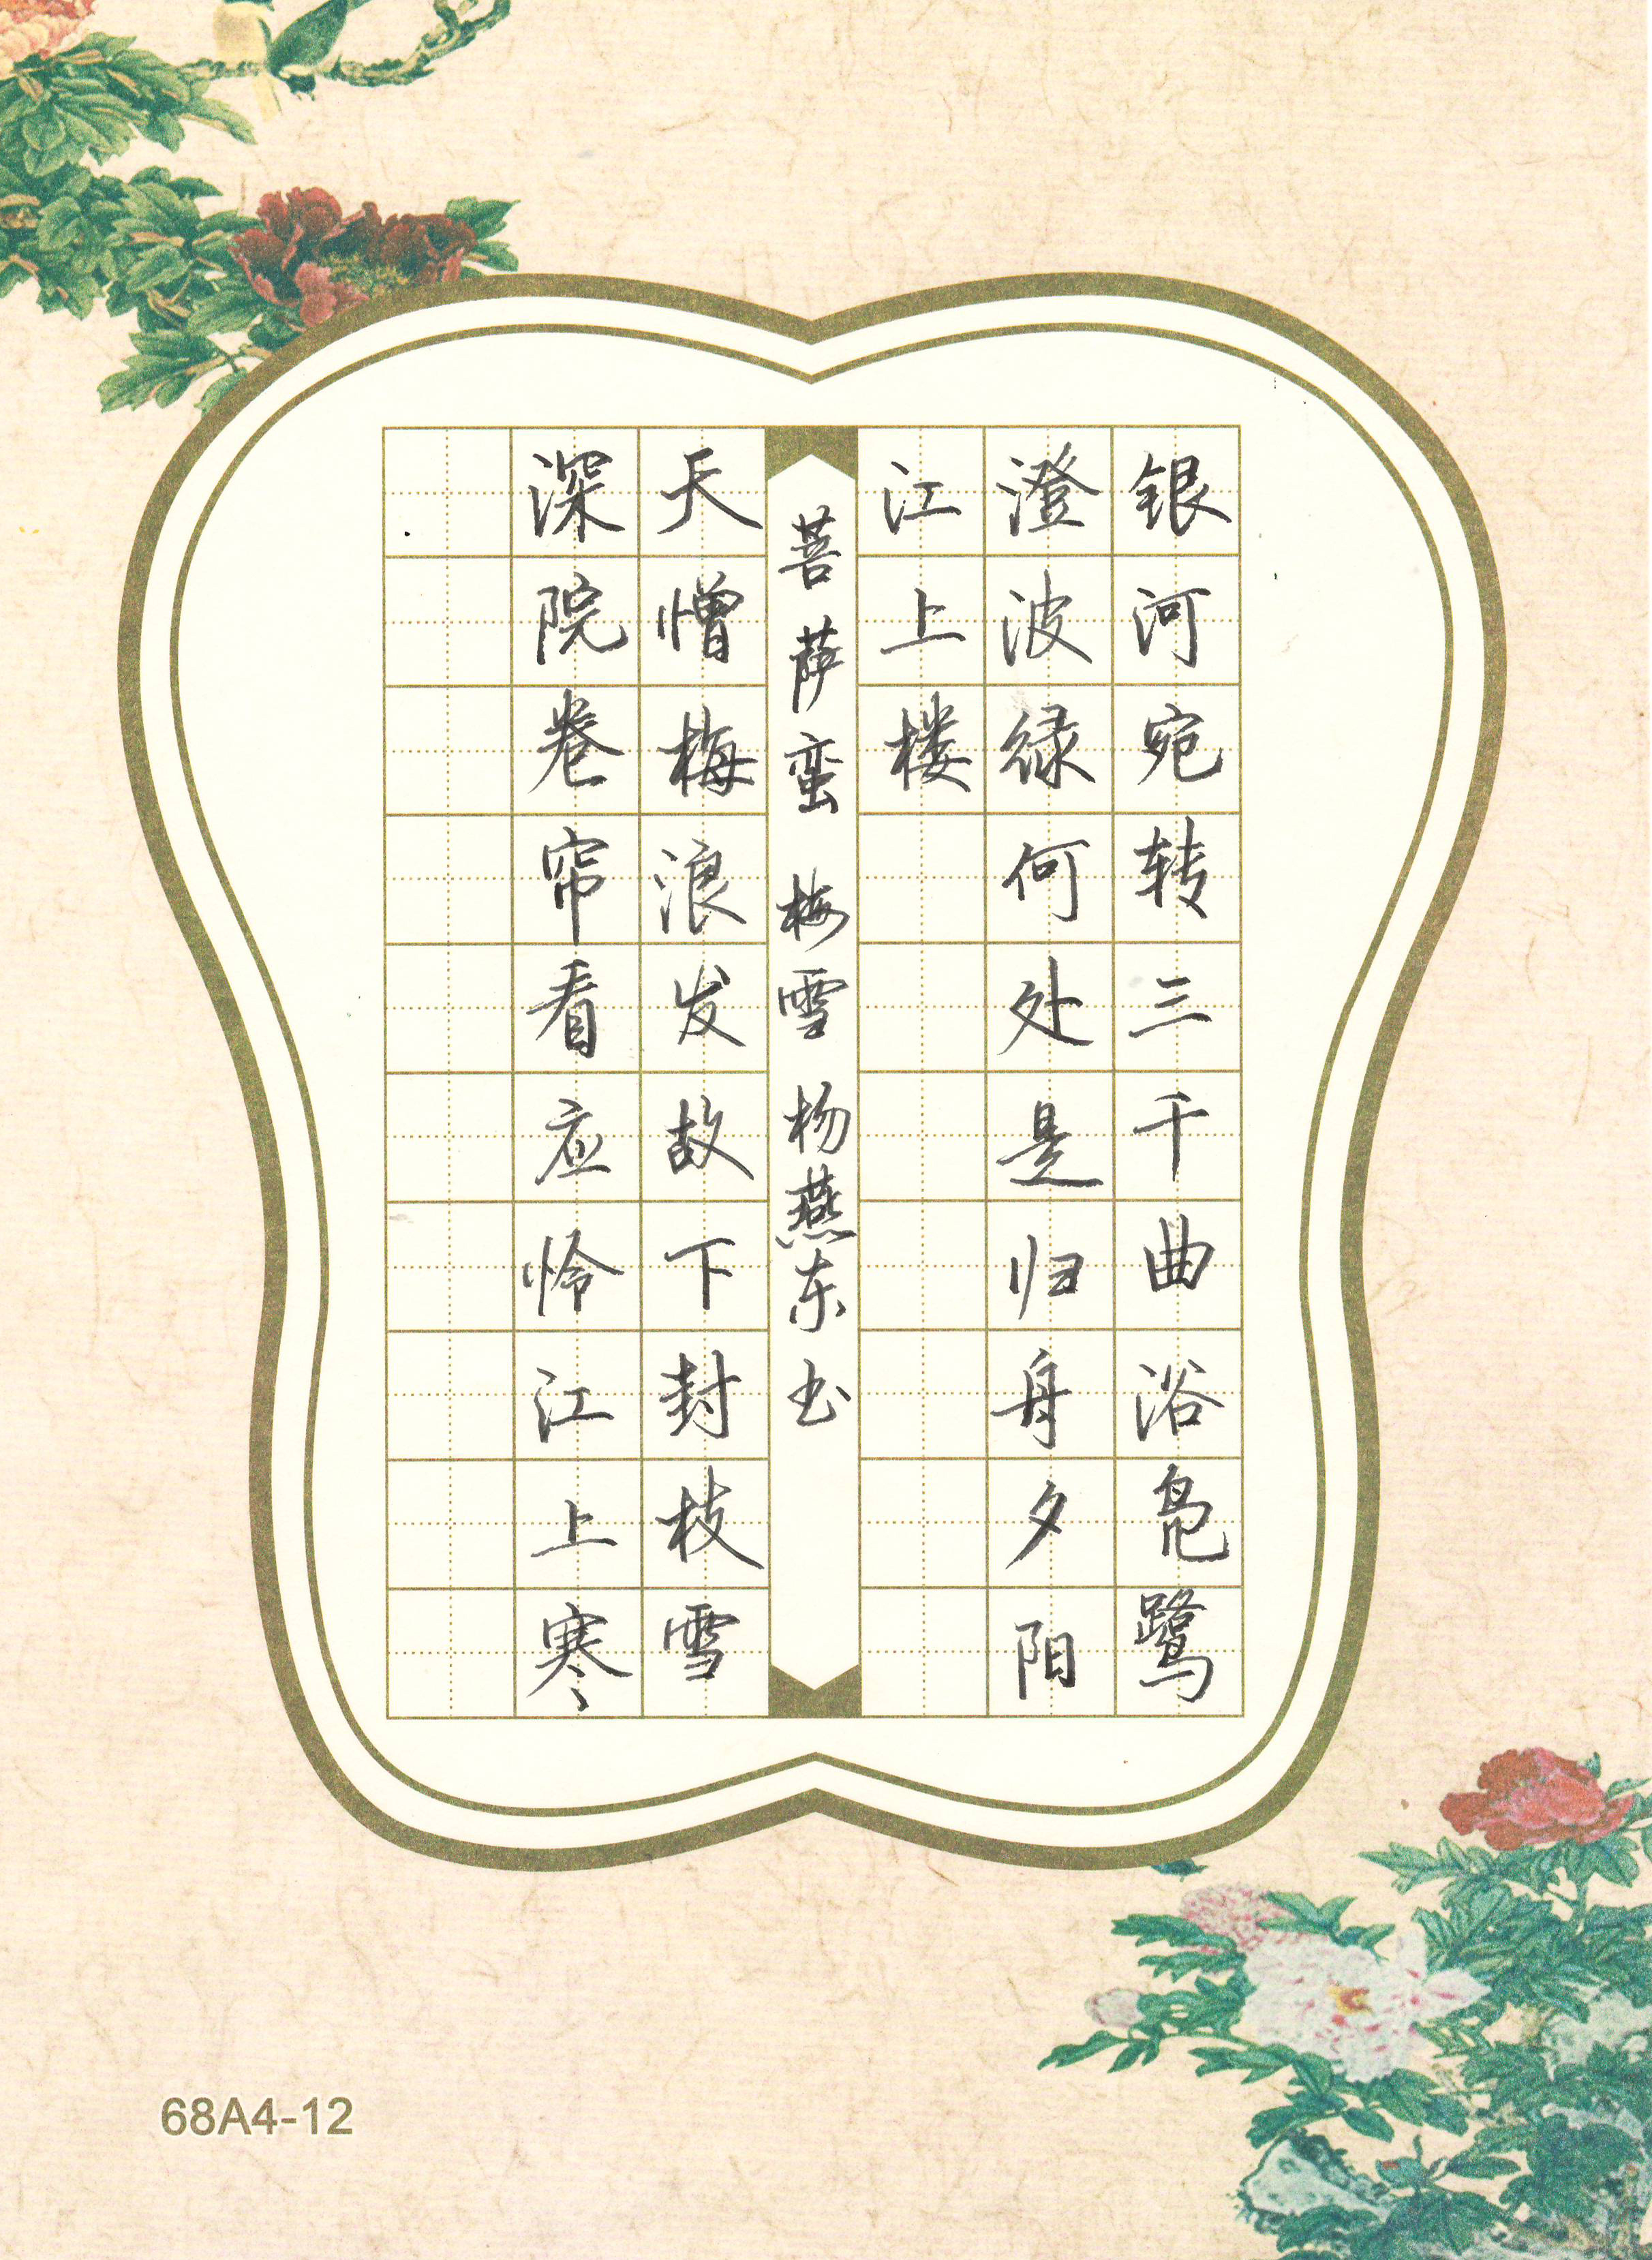 银河宛转三千曲浴凫鹭
澄波绿何处是归舟夕阳
江上楼
菩萨蛮 梅雪 杨燕东书
天憎梅浪发故下封枝雪
深院卷帘看应怜江上寒
68A4-12